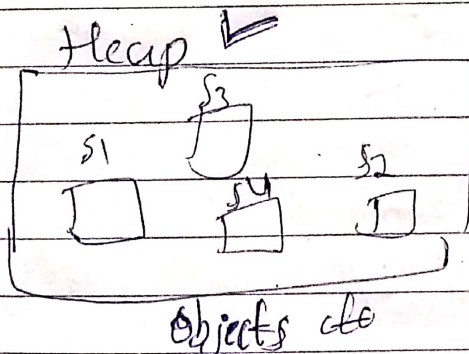 Heap
S3
S1
S2
S4
objects etc